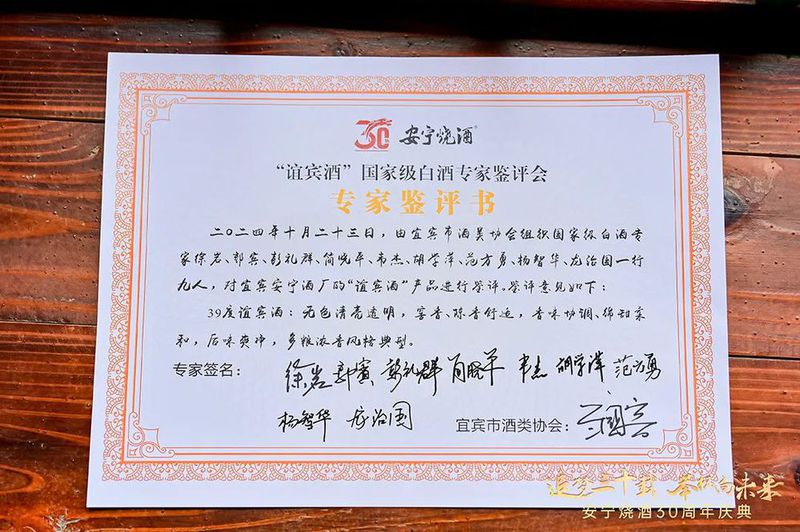 30 安宁烧酒
“谊宾酒”国家级白酒专家鉴评会
专家鉴评书
二〇二四年十月二十三日，由宜宾市酒类协会组织国家级白酒专
家徐岩、郭宾、彭礼群、简晓平、韦杰、胡学萍、范方勇、杨智华、龙治国一行
九人，对宜宾安宁酒厂的“谊宾酒”产品进行鉴评，鉴评意见如下：
39度谊宾酒：无色清亮透明，窖香、陈香舒适，香味协调、绵甜柔
和，后味爽净，多粮浓香风格典型。
专家签名：徐岩 彭礼群 韦杰 范方勇
杨智华 龙治国 宜宾市酒类协会：
安宁烧酒30周年庆典